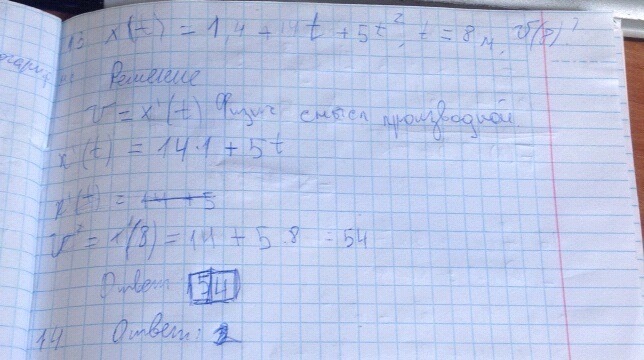 13 x(t) = 1,4 + 14t + 5t², t = 8 ч, v(8)?
Решение
v = x'(t) Физич смысл производной
x'(t) = 14·1 + 5t
x'(t) = 14 + 5
v = 1'(8) = 14 + 5·8 = 54
Ответ: 54
14 Ответ: 2